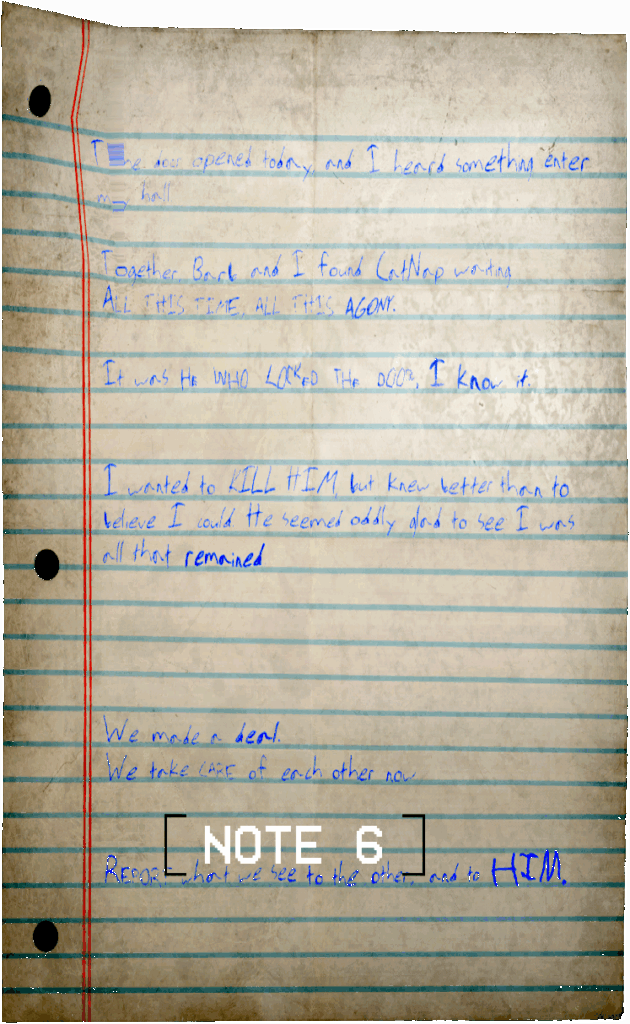 The door opened today, and I heard something enter
my hall
Together, Barb and I found CatNap waiting
ALL THIS TIME, ALL THIS AGONY.
It was HE WHO LOCKED THE DOOR, I know it.
I wanted to KILL HIM, but knew better than to
believe I could He seemed oddly glad to see I was
all that remained
We made a deal.
We take CARE of each other now
NOTE 6
REPORT what we see to the other, and to HIM.